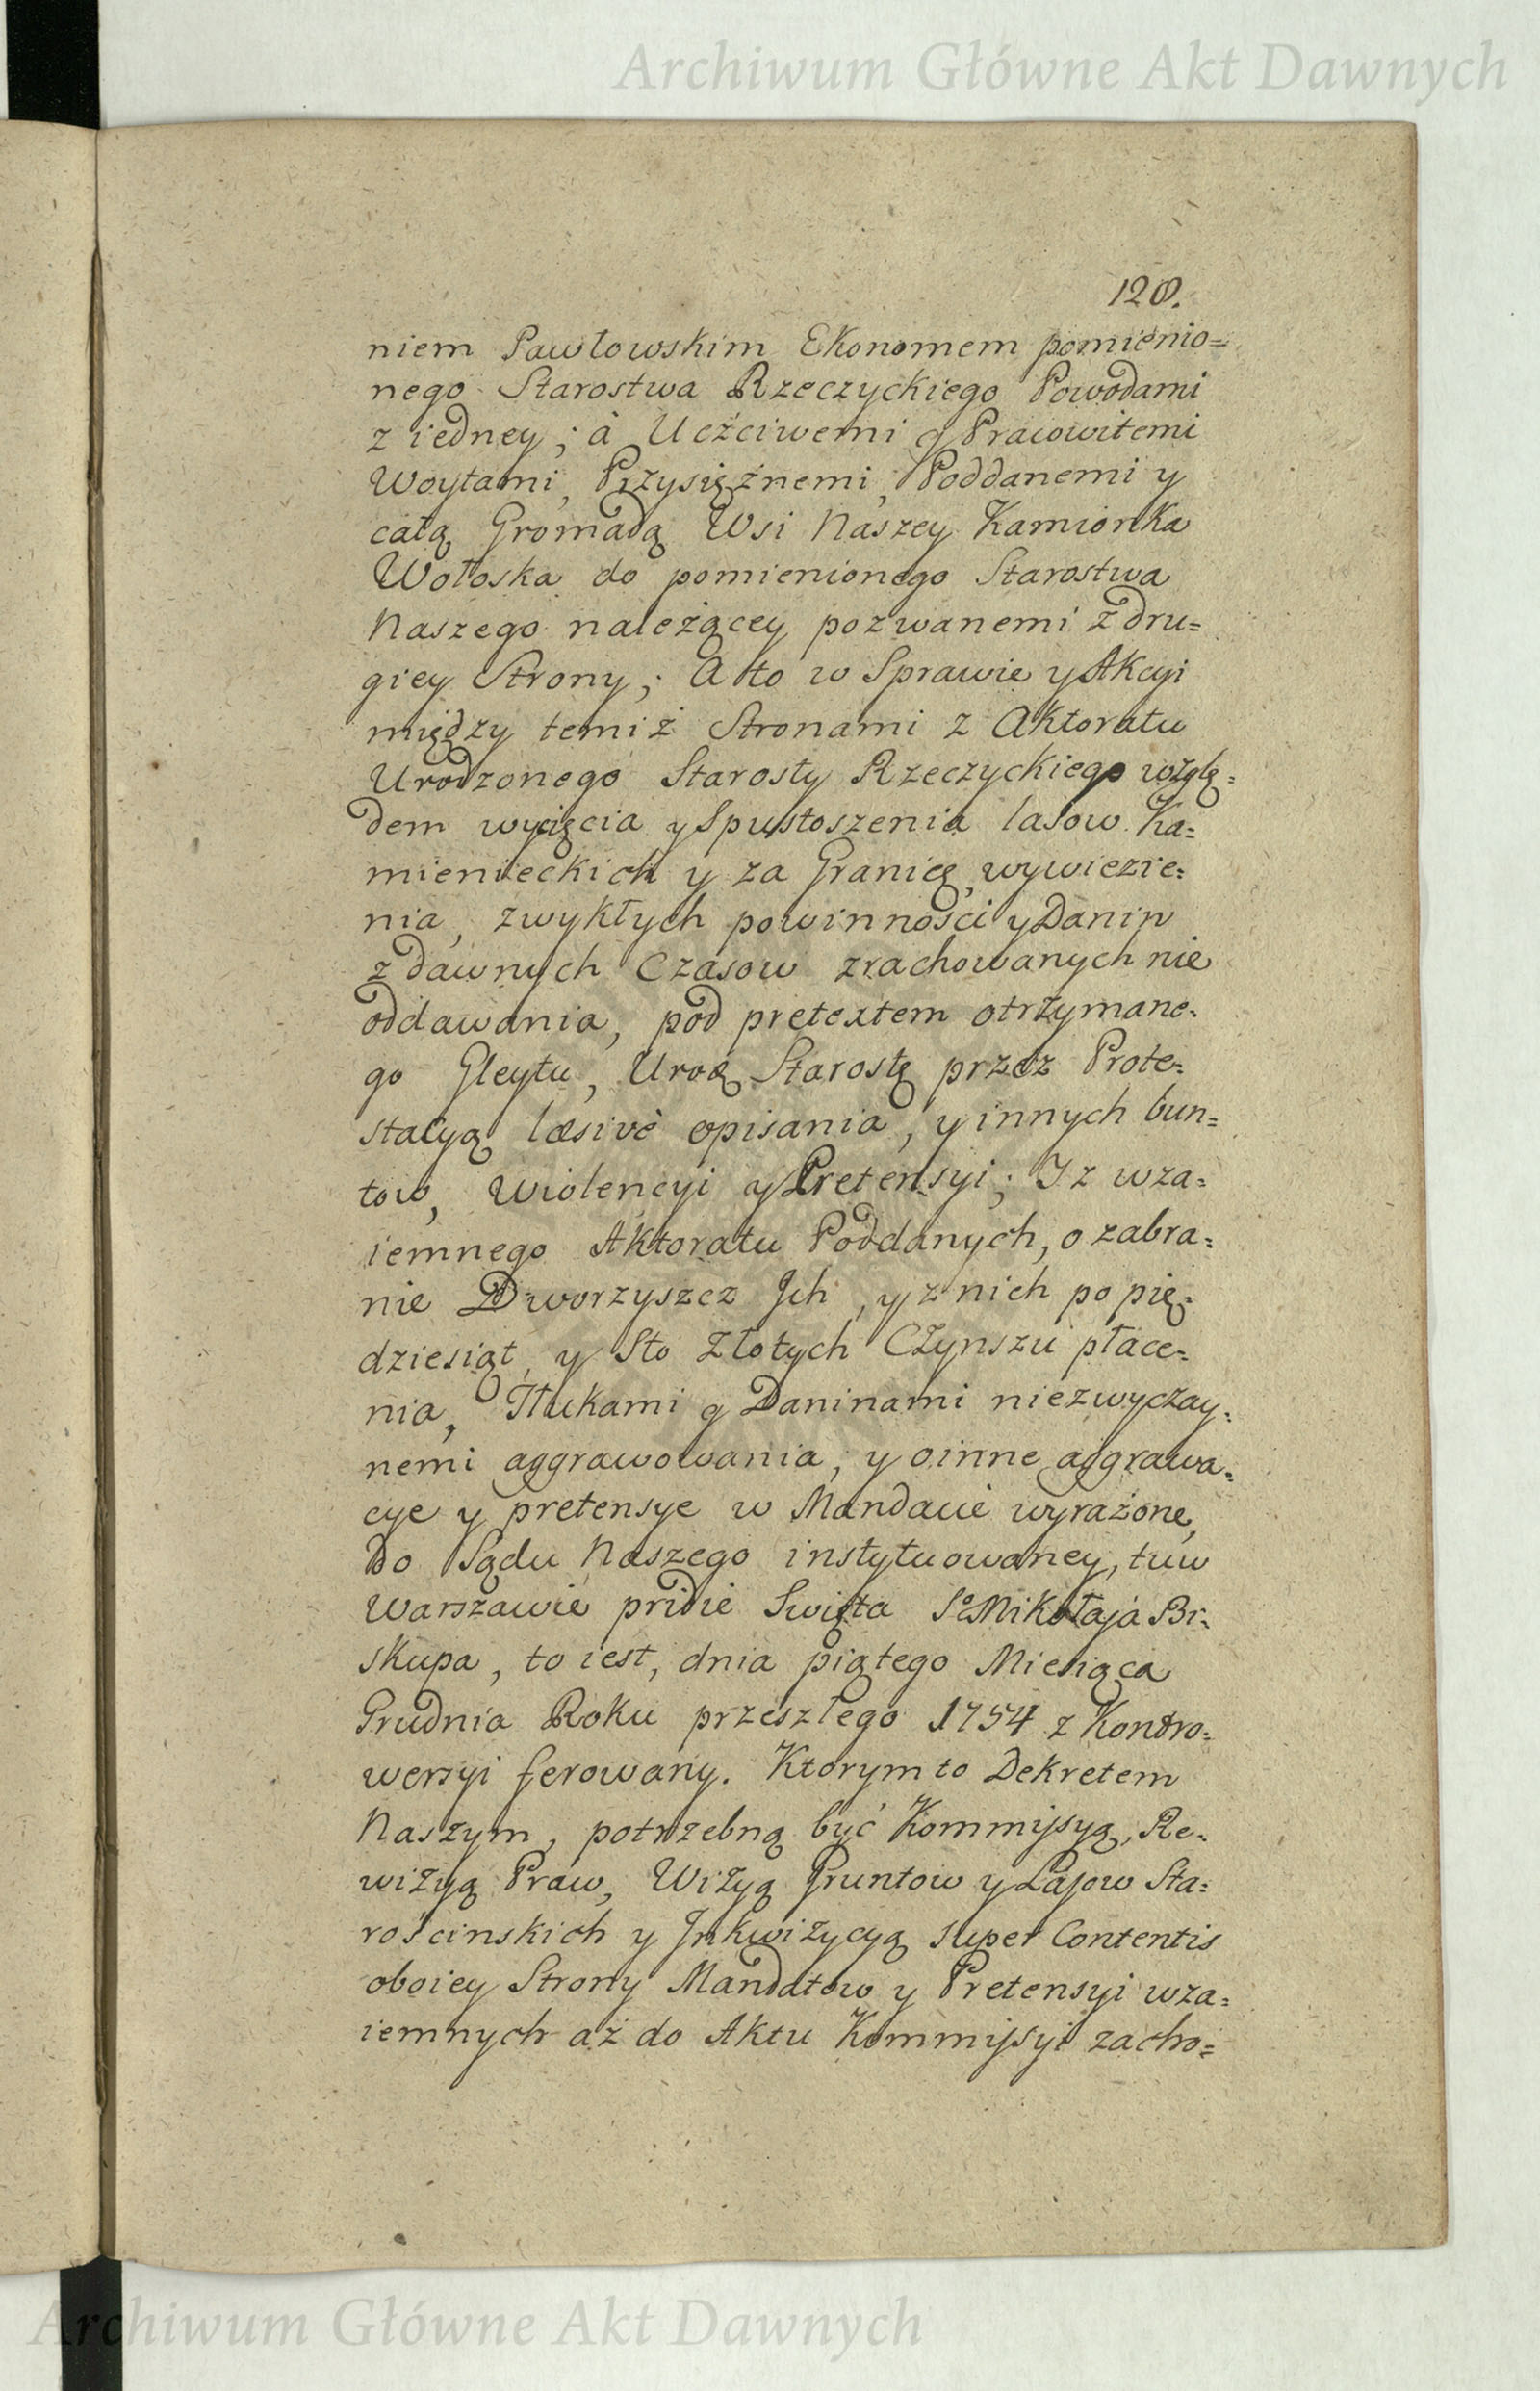 Archiwum Główne Akt Dawnych
128.
niem Pawłowskim Ekonomem pomienio=
nego Starostwa Rzeczyckiego Powodami
z iedney; à Uczciwemi y Pracowitemi
Woytami, Przysiężnemi, Poddanemi y
całą Gromadą Wsi Naszey Kamionka
Wołoska do pomienionego Starostwa
Naszego należącey pozwanemi z dru=
giey Strony; A to w Sprawie y Akcyi
między temiż Stronami z Aktoratu
Urodzonego Starosty Rzeczyckiego wzglę=
dem wycięcia y Spustoszenia lasow Ka=
mienieckich y za Granicę wywiezie=
nia, zwykłych powinności y Danin
z dawnych Czasow zrachowanych nie
oddawania, pod pretextem otrzymane=
go Gleytu, Urod Starostę przez Prote=
stacyą læsivè opisania, y innych bun=
tow, Wiolencyi y Pretensyi; I z wza=
iemnego Aktoratu Poddanych, o zabra=
nie Dworzyszcz Ich, y z nich po pię=
dziesiąt, y Sto Złotych Czynszu płace=
nia, Tłukami y Daninami niezwyczay=
nemi aggrawowania, y o inne aggrawa=
cye y pretensye w Mandacie wyrażone,
Do Sądu Naszego instytuowaney, tu w
Warszawie pridie Swięta So Mikołaja Bi=
skupa, to iest, dnia piątego Miesiąca
Grudnia Roku przeszłego 1754 z Kontro=
wersyi ferowany. Ktorym to Dekretem
Naszym, potrzebną być Kommissyą, Re=
wizyą Praw, Wizyą Gruntow y Lasow Sta=
rościnskich y Inkwizycyą super Contentis
oboiey Strony Mandatow y Pretensyi wza=
iemnych aż do Aktu Kommissyi zacho=
Archiwum Główne Akt Dawnych